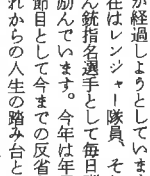 が経過しようとしていま
在はレンジャー隊員、そ
ん銃指名選手として毎日
励んでいます。今年は年
節目として今までの反省
れからの人生の踏み台と